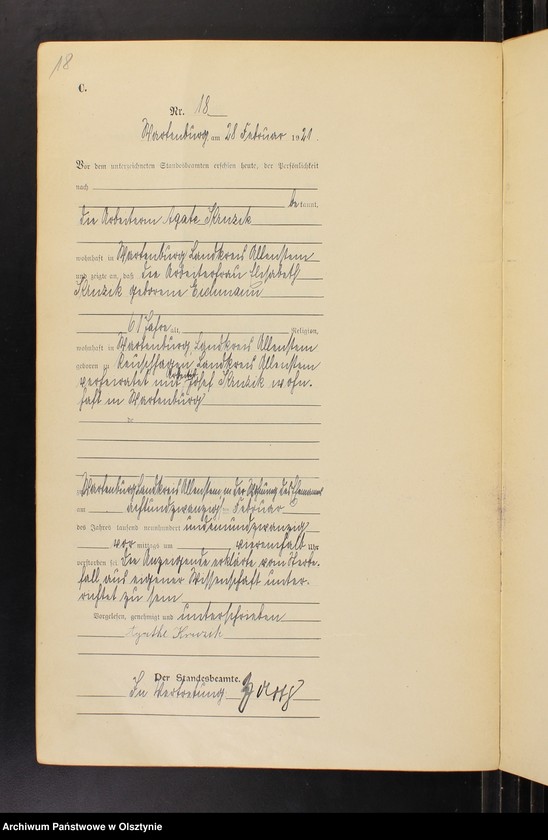 18
C.
Nr. 18
Wartenburg am 28 Februar 1921.
Vor dem unterzeichneten Standesbeamten erschien heute, der Persönlichkeit
nach
be kannt,
die Arbeiterin Agate Skruzik
wohnhaft in Wartenburg Landkreis Allenstein
und zeigte an, daß die Arbeiterfrau Elisabeth
Skruzik geborene Eichmann
61 Jahre alt, Religion,
wohnhaft in Wartenburg, Landkreis Allenstein
geboren zu Landkreis Allenstein
verheiratet mit Josef Skruzik wohn-
haft in Wartenburg
de
zu Wartenburg Landkreis Allenstein, in der Wohnung des Ehemanns
am achtundzwanzig Februar
des Jahres tausend neunhundert undeinundzwanzig
vor mittags um viereinhalb Uhr
verstorben sei. Die Anzeigende erklärte vom Sterbe-
fall aus eigener Wissenschaft unter-
richtet zu sein
Vorgelesen, genehmigt und unterschrieben
Der Standesbeamte.
In Vertretung
Archiwum Państwowe w Olsztynie